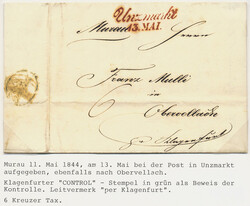 Unzmarkt
13. MAI.
Murau
Herrn
Franz Mulli
Obervellach
Murau 11. Mai 1844, am 13. Mai bei der Post in Unzmarkt
aufgegeben, ebenfalls nach Obervellach.
Klagenfurter "CONTROL" - Stempel in grün als Beweis der
Kontrolle. Leitvermerk "per Klagenfurt".
6 Kreuzer Tax.